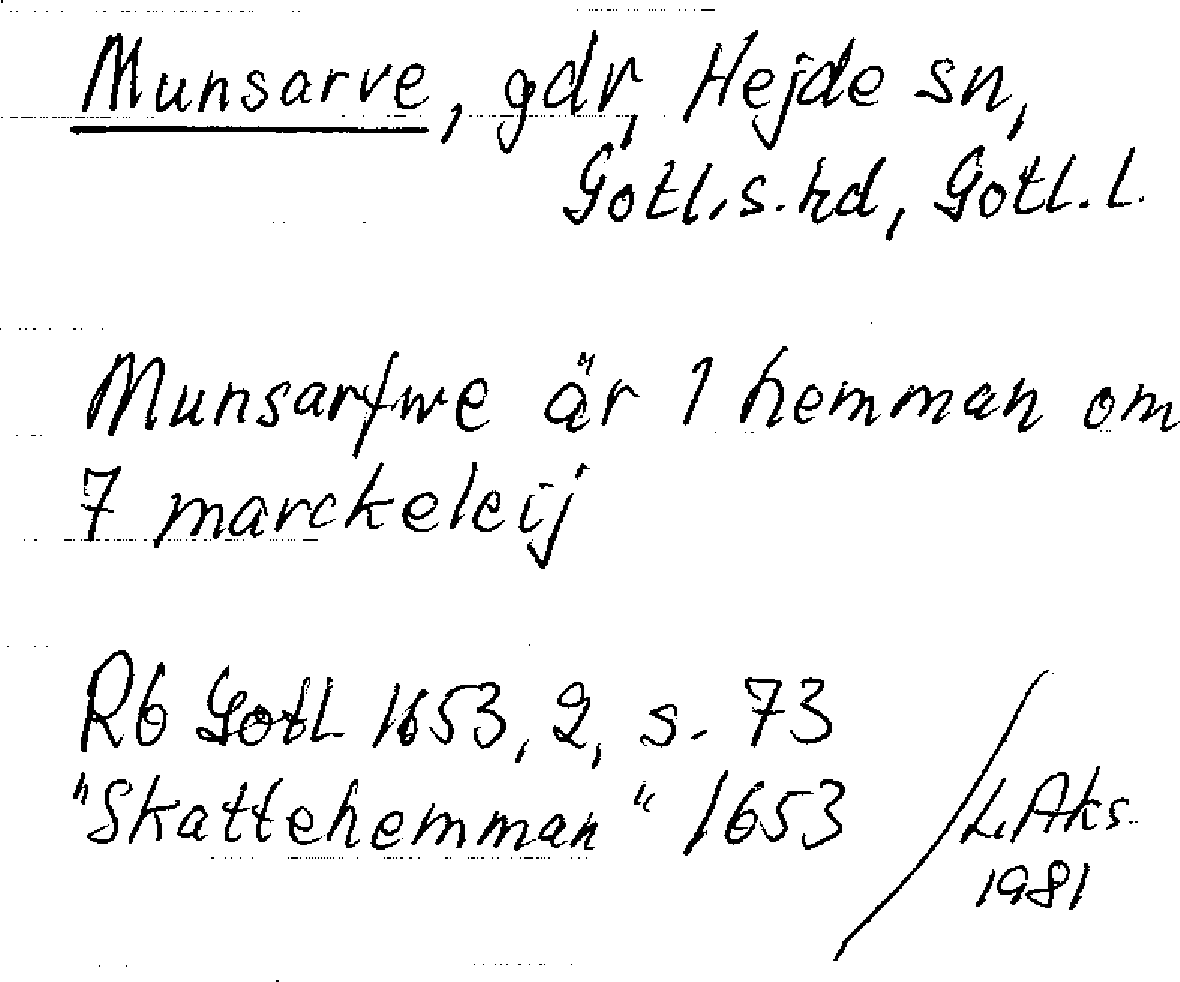 Munsarve, gdr, Hejde sn,
Gotl. s. hd, Gotl. l.
Munsarfwe är 1 hemman om
7 marckeleij
Rb Gotl 1653, 2, s. 73
"Skattehemman" 1653
L. Aks.
1981